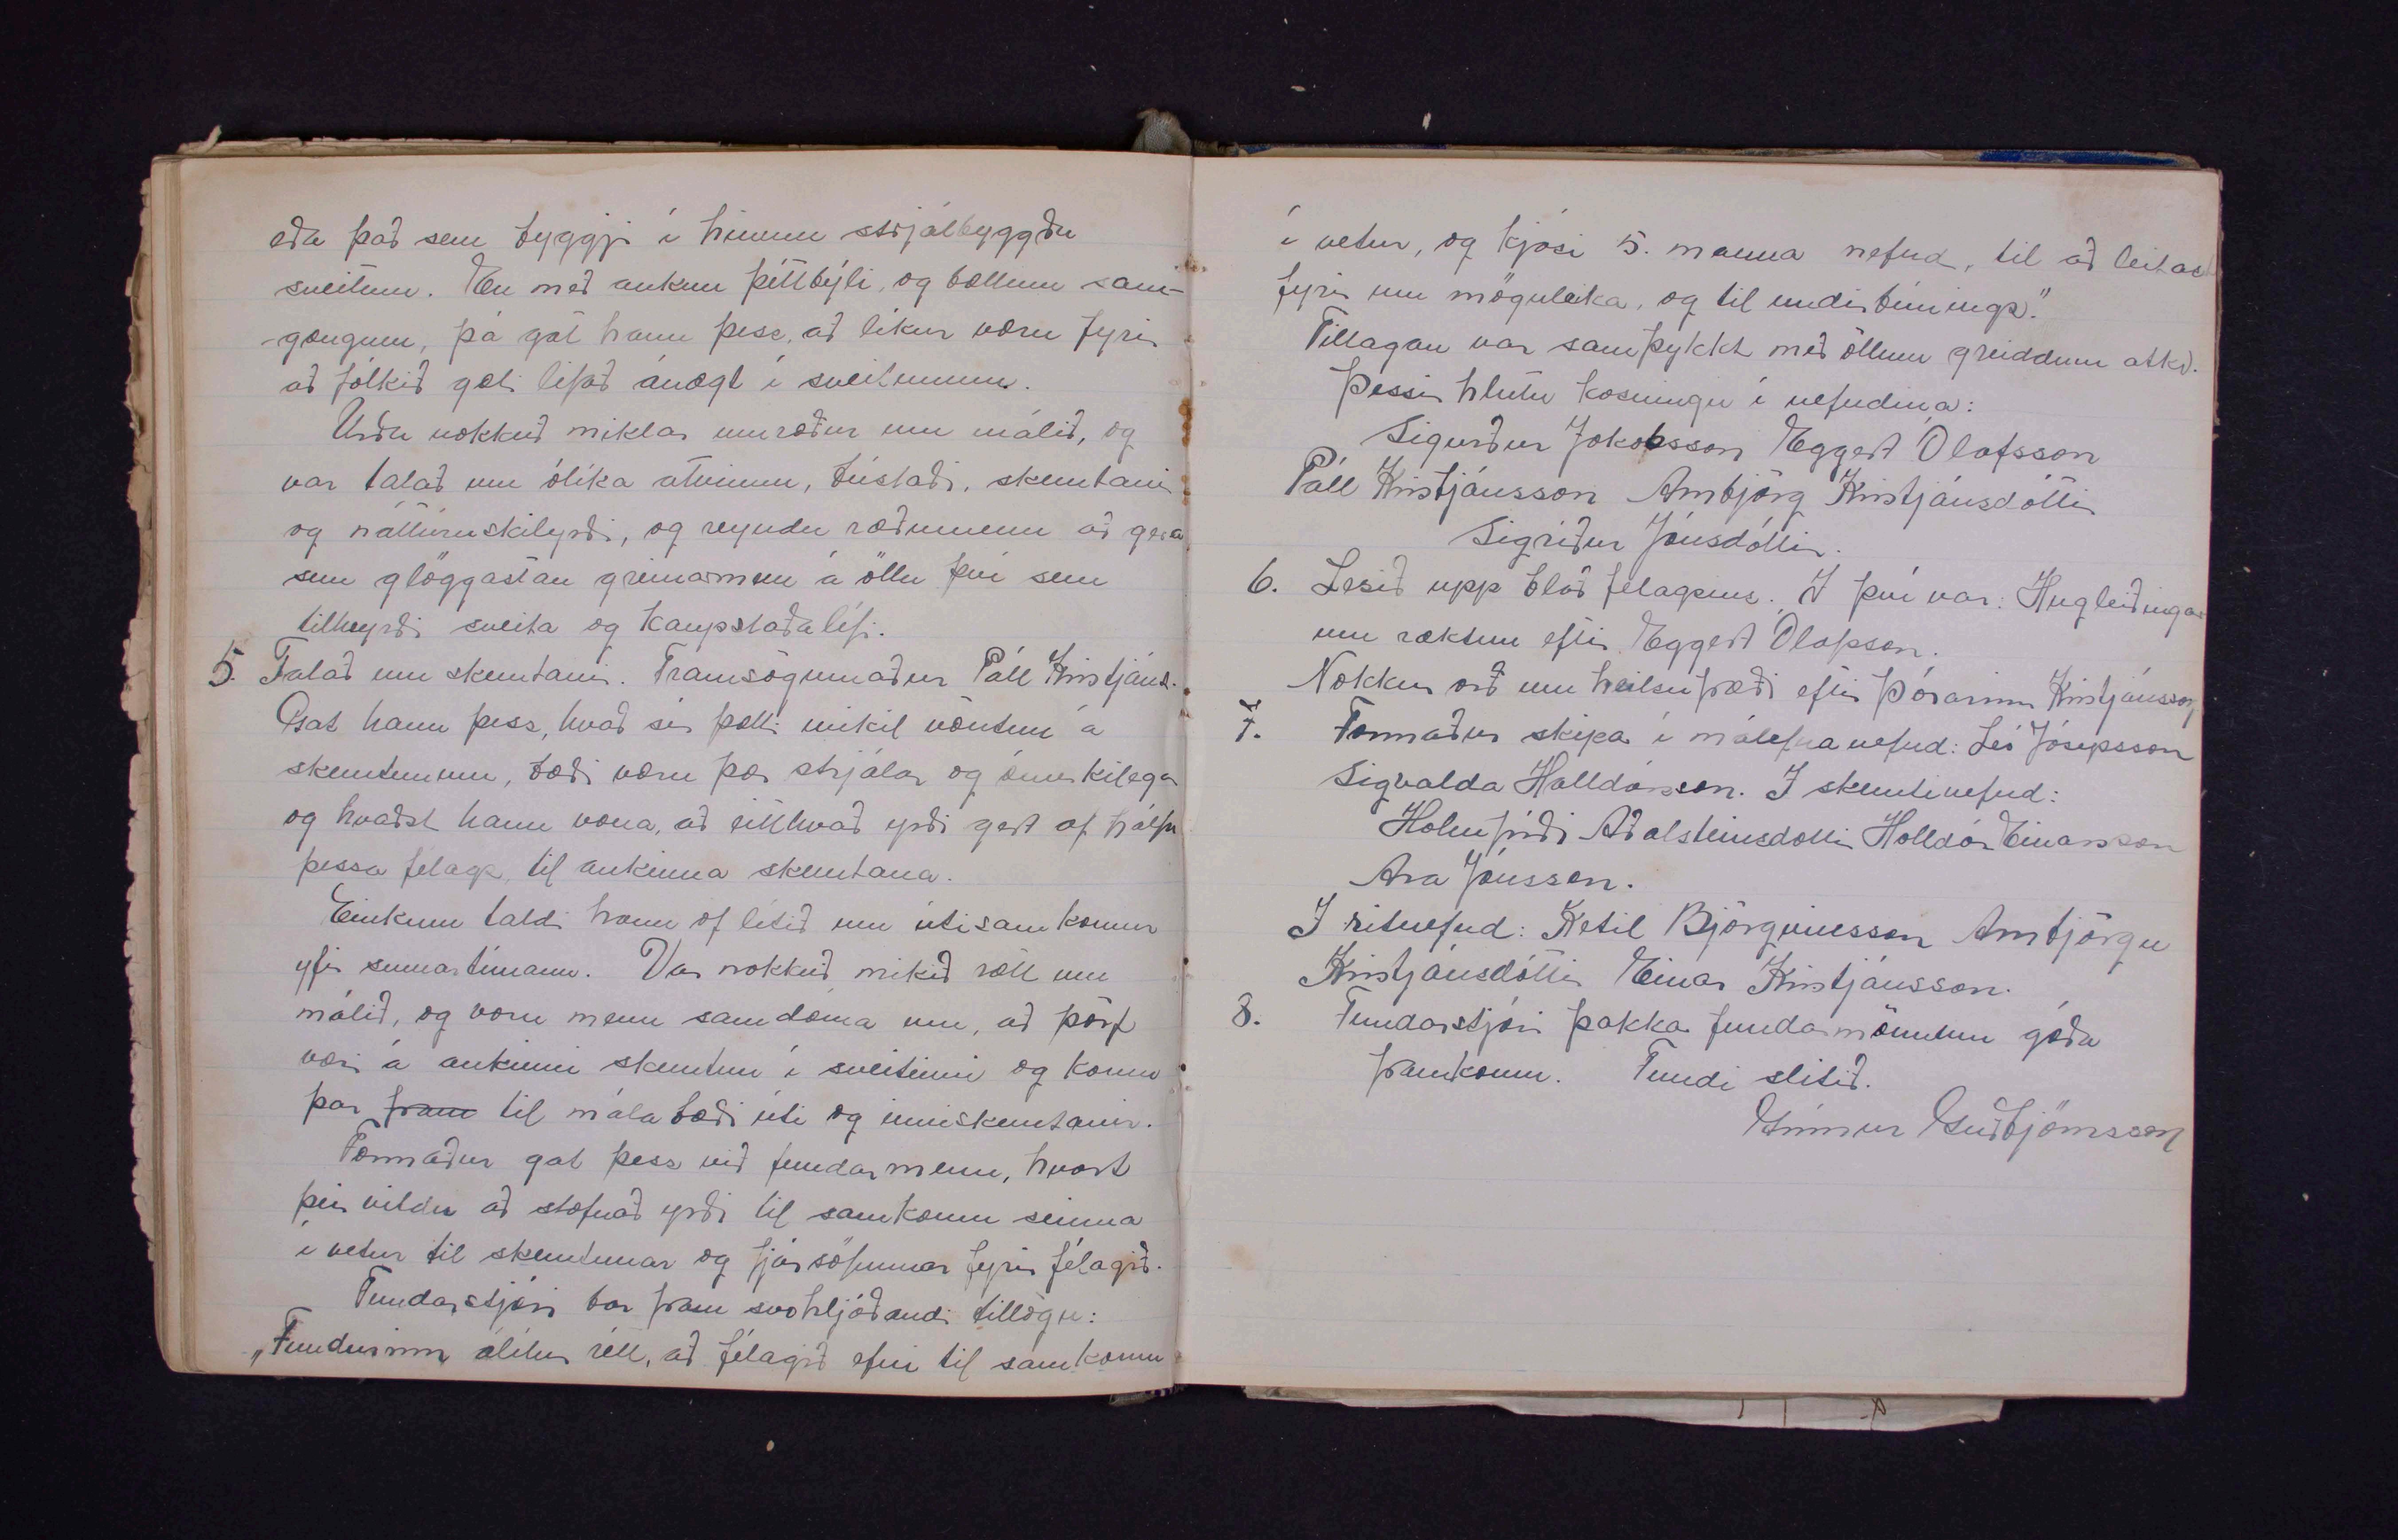 eða það sem byggji í hinum strjálbyggðu
sveitum. En með auknu þéttbýli, og bættum sam-
-gongum, þá gat hann þess, að líkur væru fyrir
að fólkið gæti lifað ánægt í sveitunum.
Urðu nokkuð miklar umræður um málið, og
var talað um ólíka atvinnu, bústaði, skemtanir
og náttúruskilyrði, og reyndu ræðumenn að gera
sem glöggastan greinarmun á öllu því sem
tilheyrði sveita og kaupstaðalífi.
5. Talað um skemtanir. Framsögumaður Páll Kristjáns.
Gat hann þess, hvað sér þætti mikil vöntun á
skemtunum, bæði væru þær strjálar og ómerkilegar
og hvaðst hann vona, að eitthvað yrði gert af hálfu
þessa félags, til aukinna skemtana.
Einkum taldi hann of lítið um útisamkomur
yfir sumartímann. Var nokkuð mikið rætt um
málið, og voru menn samdóma um, að þörf
væri á aukinni skemtun í sveitinni og komu
þar fram til mála bæði úti og inniskemtanir.
Formaður gat þess við fundarmenn, hvort
þeir vildu að stofnað yrði til samkomu seinna
í vetur til skemtunar og fjársöfnunar fyrir félagið.
Fundarstjóri bar fram svohljóðandi tillögu:
„Fundurinn álítur rétt, að félagið efni til samkomu
í vetur, og kjósi 5. manna nefnd, til að leitast
fyrir um möguleika, og til undirbúnings."
Tillagan var samþykkt með öllum greiddum atkv.
Þessir hlutu kosningu í nefndina:
Sigurður Jakobsson Eggert Ólafsson
Páll Kristjánsson Arnbjörg Kristjánsdóttir
Sigríður Jónsdóttir.
6. Lesið upp blað félagsins. Í því var: Hugleiðingar
um ræktun eftir Eggert Ólafsson.
Nokkur orð um heilsufræði eftir Þórarinn Kristjánsson
7. Formaður skipa í málefnanefnd: Leó Jósepsson
Sigvalda Halldórsson. I skemtinefnd:
Holmfríði Aðalsteinsdottir Holldór Einarsson
Ara Jónsson.
I ritnefnd: Ketil Björgvinsson Arnbjörgu
Kristjánsdóttir Einar Kristjánsson.
8. Fundarstjóri þakka fundarmönnum góða
framkomu. Fundi slitið.
Grímur Guðbjörnsson